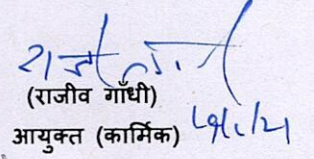 (राजीव गाँधी)
आयुक्त (कार्मिक)